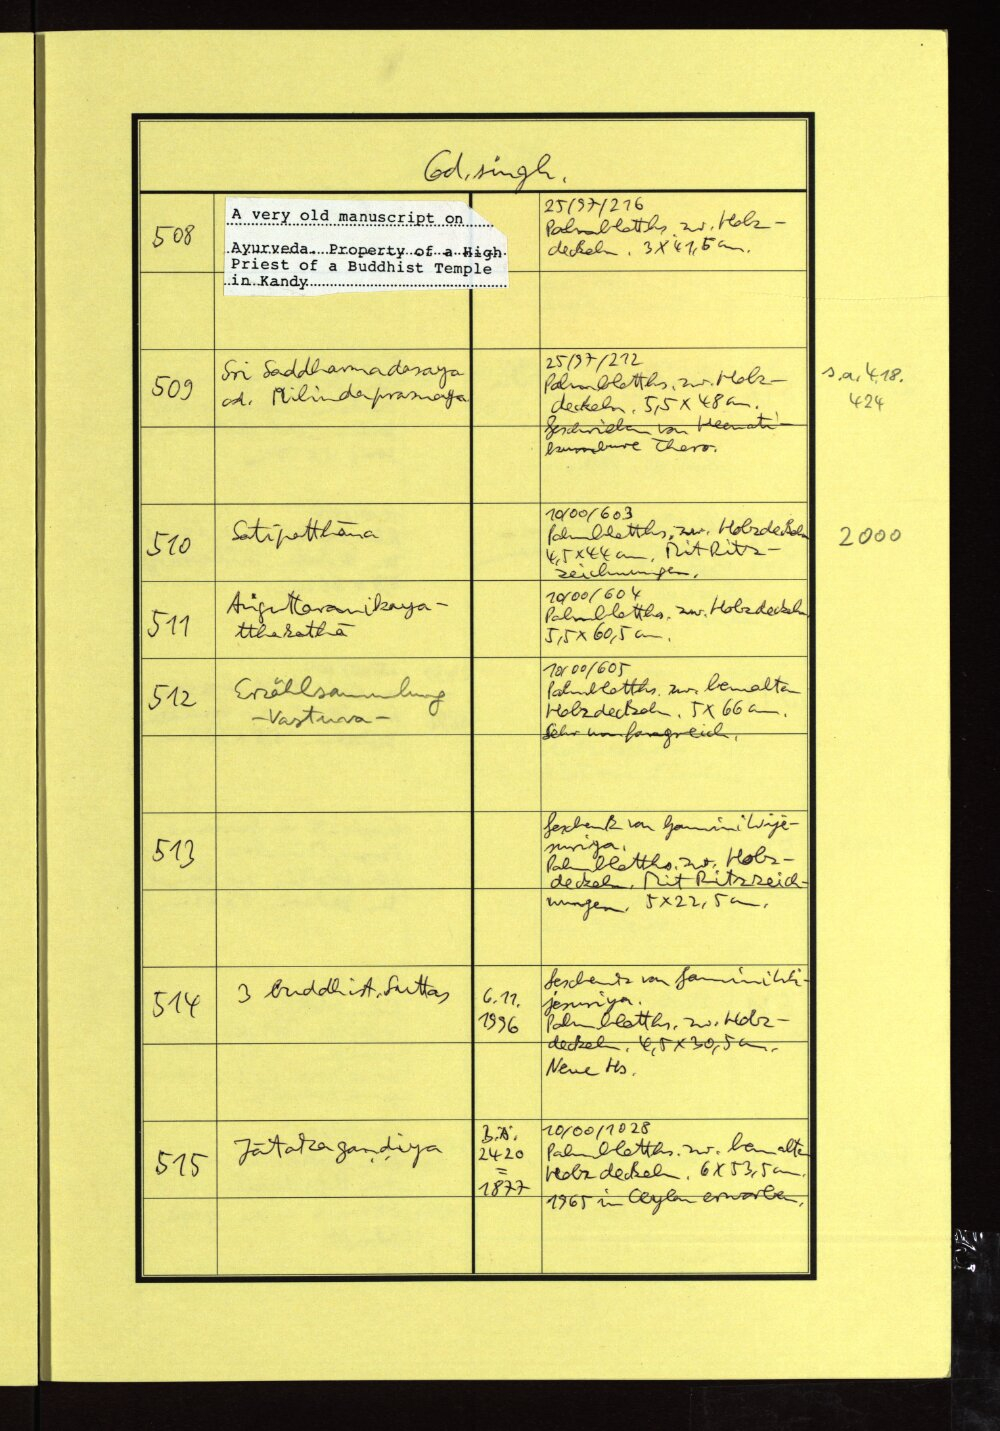 Cod. singh.
508
A very old manuscript on
Ayurveda. Property of a High
Priest of a Buddhist Temple
in Kandy
25/97/216
Palmblatths. zw. Holz-
deckeln. 3 X 41,5 cm.
509
Sri Saddharmadasaya
od. Milindaprasnaya
25/97/212
Palmblatths. zw. Holz-
deckeln. 5,5 X 48 cm.
Geschrieben von Heenati-
kumbure Thero.
s.a. 418.
424
510
Satipatthāna
10/00/603
Palmblatths. zw. Holzdeckeln
4,5 X 44 cm. Mit Ritz-
zeichnungen.
2000
511
Aṅguttaranikaya-
tthakathā
10/00/604
Palmblatths. zw. Holzdeckeln
5,5 X 60,5 cm.
512
Erzählsammlung
-Vastuva-
10/00/605
Palmblatths. zw. bemalten
Holzdeckeln. 5 X 66 cm.
Sehr umfangreich.
513
Geschenk von Gamini Wije-
suriya.
Palmblatths. zw. Holz-
deckeln. Mit Ritzzeich-
nungen. 5 X 22,5 cm.
514
3 buddhist. Suttas
6.11.
1996
Geschenk von Gamini Wi-
jesuriya.
Palmblatths. zw. Holz-
deckeln. 4,5 X 30,5 cm.
Neue Hs.
515
Jātakagaṇḍiya
B.Ä.
2420
=
1877
10/00/1028
Palmblatths. zw. bemalten
Holzdeckeln. 6 X 53,5 cm.
1965 in Ceylon erworben.